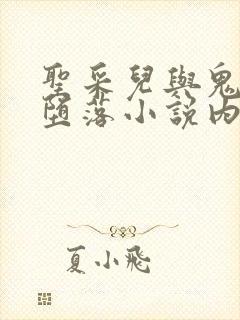 聖采兒與鬼
墮落小說內
夏小飛